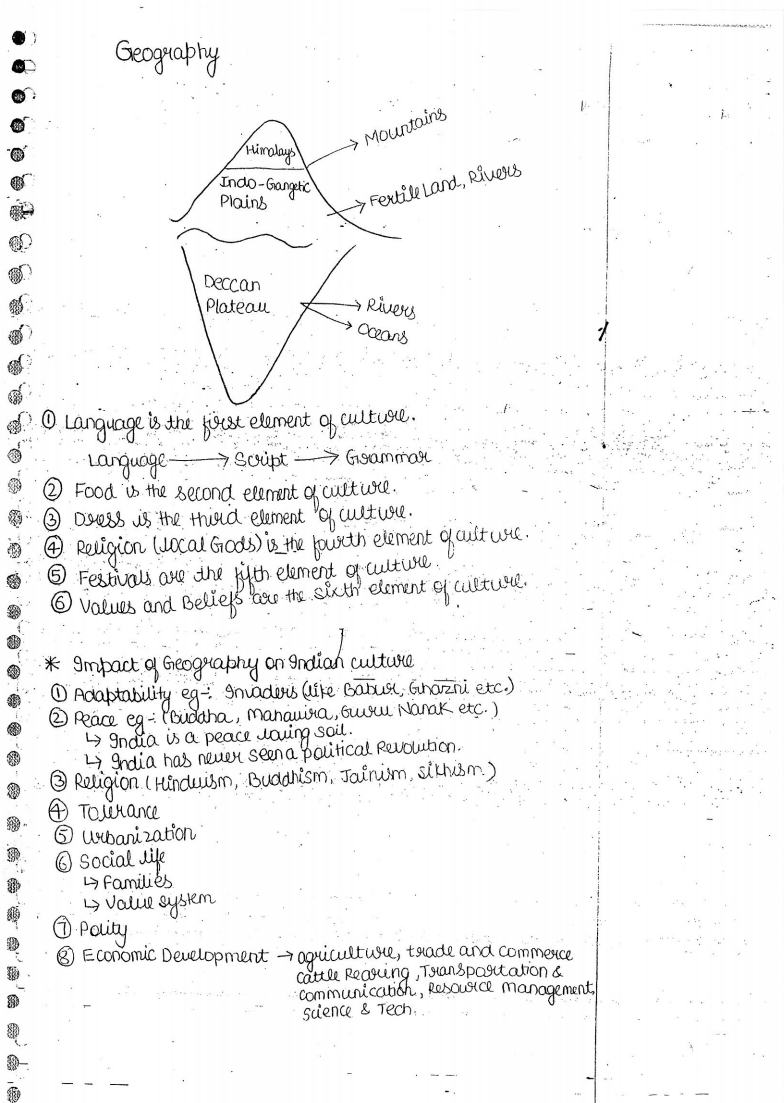 Geography
Himalays
Mountains
Indo-Gangetic
Plains
Fertile Land, Rivers
Deccan
Plateau
Rivers
Oceans
① Language is the first element of culture.
Language → Script → Grammar
② Food is the second element of culture.
③ Dress is the third element of culture.
④ Religion (Local Gods) is the fourth element of culture.
⑤ Festivals are the fifth element of culture.
⑥ Values and Beliefs are the sixth element of culture.
* Impact of Geography on Indian culture
① Adaptability eg-: Invaders (like Babur, Ghazni etc.)
② Peace eg-: (Buddha, Mahavira, Guru Nanak etc.)
↳ India is a peace loving soil.
↳ India has never seen a political Revolution.
③ Religion (Hinduism, Buddhism, Jainism, Sikhism)
④ Tolerance
⑤ Urbanization
⑥ Social life
↳ Families
↳ Value system
⑦ Polity
⑧ Economic Development → agriculture, trade and commerce
cattle Rearing, Transportation &
communication, Resource management,
Science & Tech.